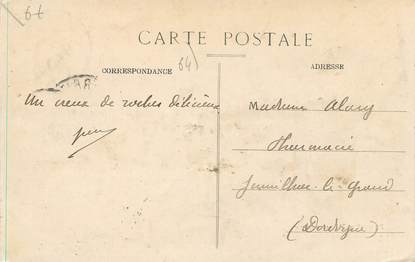 64
CARTE POSTALE
64
CORRESPONDANCE
ADRESSE
Un creux de roches délicieux
Madame Alary
Pharmacie
Jumilhac-le-Grand
(Dordogne)